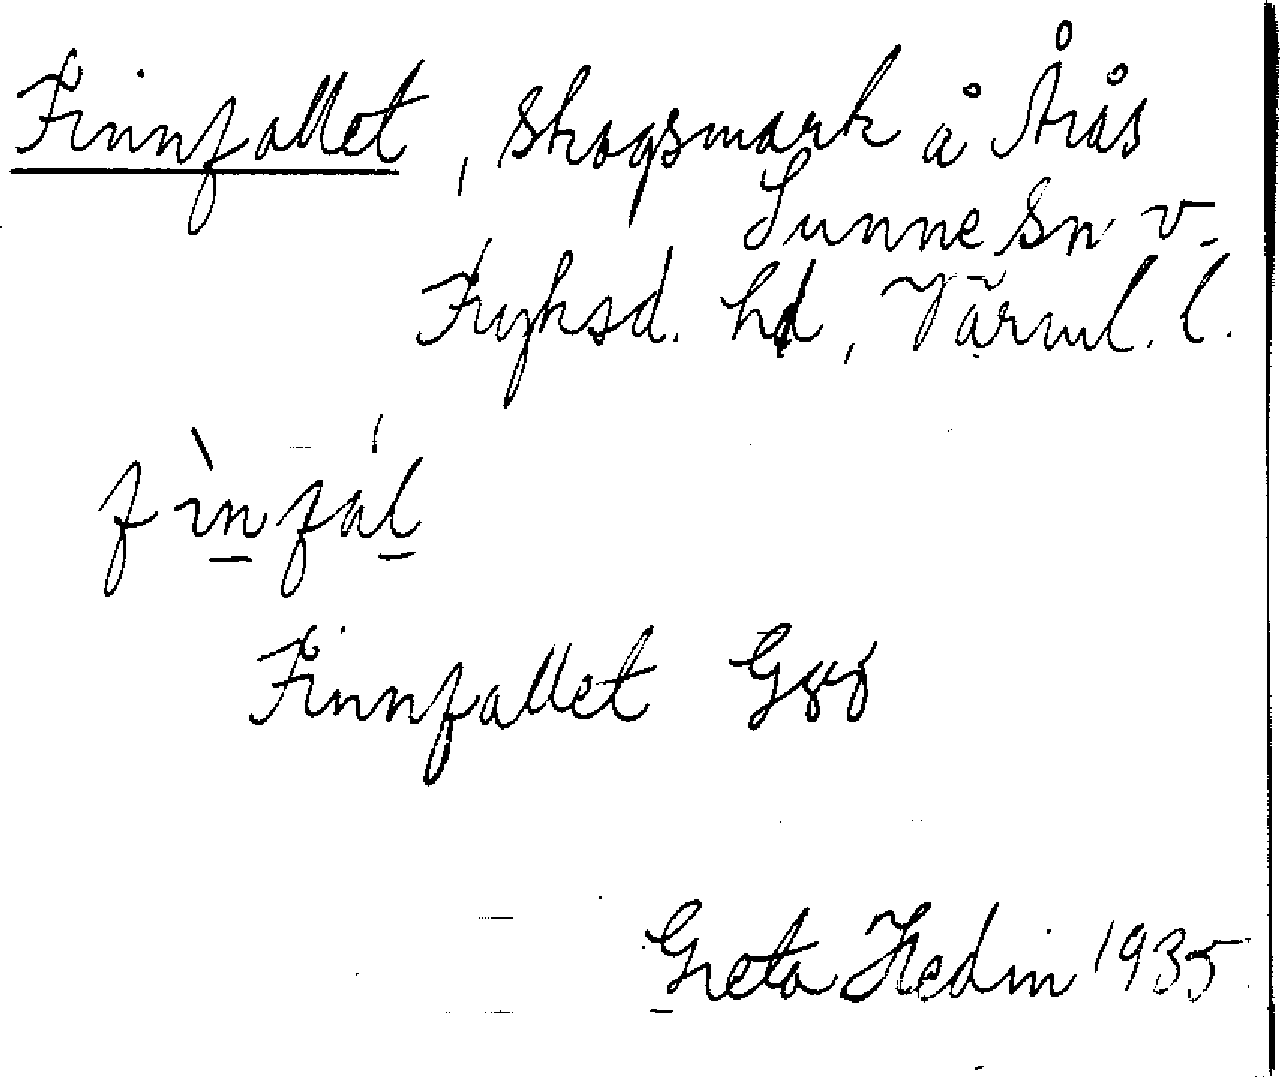 Finnfallet, skogsmark å Årås
Sunne sn v.
Fryksd. hd, Värml. l.
fìnfál
Finnfallet Gsg
Greta Hedin 1935